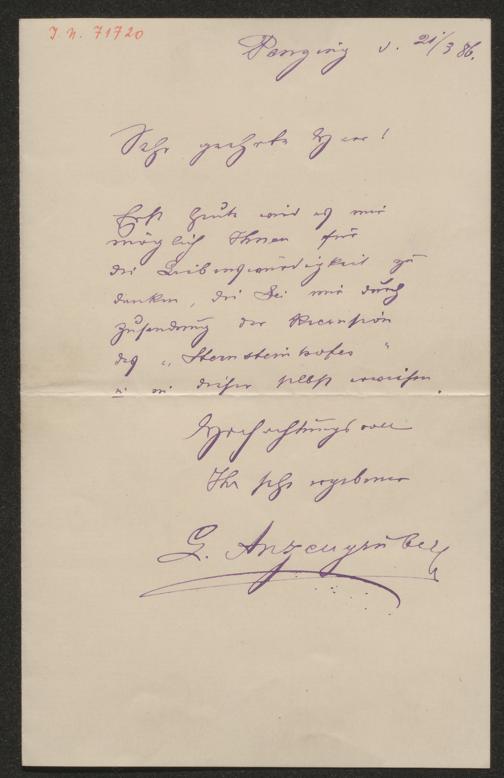 I. N. 71720
Penzing d. 21/3 86.
Sehr geehrter Herr!
Erst heute wird es mir
möglich Ihnen für
die Liebenswürdigkeit zu
danken, die Sie mir durch
Zusendung der Recension
des „Sternsteinhofes"
u. in dieser selbst erwiesen.
Hochachtungsvoll
Ihr sehr ergebener
L. Anzengruber